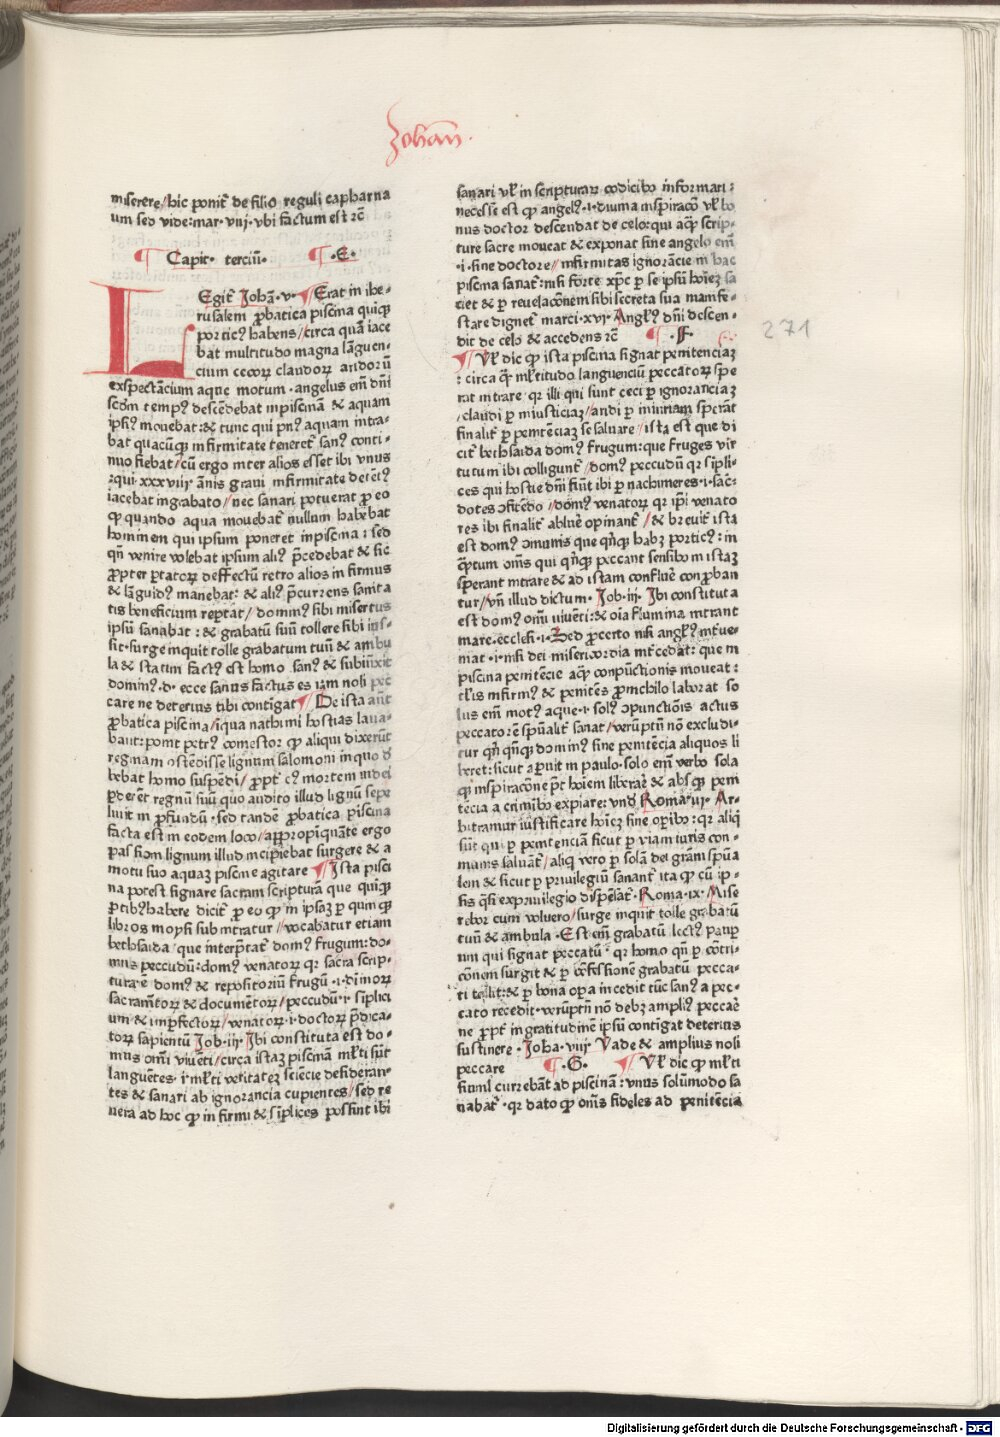 Johan̄.
miserere/hic ponit̄ de filio reguli capharna
um sed vide: mar· viij· vbi factum est ꝛc̄
¶ Capit· terciū· ¶ ·E·
LEgit̄ Johā· v· ¶ Erat in ihe-
rusalem ꝓbatica piscina quiqꝫ
portic⁹ habens/circa quā iace
bat multitudo magna lāguen-
cium cecoꝝ claudoꝝ aridoꝝ
exspectācium aque motum· angelus em̄ dn̄i
scd̄m temp⁹ descēdebat in piscinā & aquam
ip̄i⁹ mouebat: & tunc qui pn⁹ aquam intra-
bat quacūqꝫ infirmitate teneret̄ san⁹ conti-
nuo fiebat/cū ergo inter alios esset ibi vnus
:qui· xxxviij· ānis graui infirmitate detēt⁹
iacebat in grabato/nec sanari potuerat ꝓ eo
ꝙ quando aqua mouebat̄ nullum habebat
hominem qui ipsum poneret in piscina: sed
qn̄ venire volebat ipsum ali⁹ p̄cedebat & sic
ꝓpter ꝑtatoꝝ deffectū retro alios in firmus
& lāguid⁹ manebat: & ali⁹ p̄currens sanita
tis beneficium reꝑtat/domin⁹ sibi misertus
ipsū sanabat: & grabatū suū tollere sibi ius-
sit· surge inquit tolle grabatum tuū & ambu
la & statim fact⁹ est homo san⁹ & subiūxit
domin⁹· d· ecce sanus factus es iam noli pec
care ne deterius tibi contigat ¶ De ista aūt
ꝓbatica piscina/iqua nathinni hostias laua-
bant: ponit petr⁹ comestor ꝙ aliqui dixerūt
reginam ostēdisse lignum salomoni in quo d
bebat homo suspēdi/ꝓpt̄ c⁹ mortem iudei
ꝑderēt regnū suū quo audito illud lignū sepe
liuit in ꝓfundū· sed tandē ꝓbatica piscina
facta est in eodem loco/appropiquāte ergo
passiōm lignum illud incipiebat surgere & a
motu suo aquaꝫ piscine agitare ¶ Ista pisci
na potest signare sacram scripturā que quiqꝫ
ꝑtib⁹ habere dicit̄ ꝓ eo ꝙ in ipsaꝫ ꝑ quinqꝫ
libros moysi sub intratur/vocabatur etiam
bethsaida/que interp̄tat̄ dom⁹ frugum: do-
mus peccudū: dom⁹ venatoꝝ qr sacra scrip-
tura ē dom⁹ & repositoriū frugū ·i· diuinoꝝ
sacram̄toꝝ & documētoꝝ/peccudū ·i· siplici
um & imꝑfectoꝝ/venatoꝝ ·i· doctoꝝ p̄dica-
toꝝ sapientū Job· iij· Ibi constituta est do-
mus om̄i viuēti/circa istaꝫ piscinam ml̄ti sūt
languētes· i· ml̄ti veritateꝫ sciēcie desideran-
tes & sanari ab ignorancia cupientes/sed re
uera ad hoc ꝙ in firmi & siplices possint ibi
sanari vl̄ in scripturaꝝ codicibꝯ informari:
necesse est ꝙ angel⁹ ·i· diuina inspiracō vl̄ bo
nus doctor descendat de celo: qui aqꝫ scrip-
ture sacre moueat & exponat sine angelo em̄
·i· sine doctore/infirmitas ignorācie in hac
piscina sanat̄: nisi forte xp̄c ꝑ se ipsū hoīeꝫ sa
ciet & ꝑ reuelacōnem sibi secreta sua manife-
stare dignet̄ marci· xvi· Angel⁹ dn̄i descen-
dit de celo & accedens ꝛc̄ ¶ ·F·
¶ Vl̄ dic ꝙ ista piscina signat penitenciaꝫ
: circa qꝫ ml̄titudo languenciū peccatoꝝ spe
rat intrare· qr illi qui sunt ceci ꝑ ignoranciaꝫ
/claudi ꝑ iniusticiaꝫ/aridi ꝑ iniuriam sperāt
finalit̄ ꝑ penitēciaꝫ se saluare/ista est que di
cit̄ bethsaida dom⁹ frugum: que fruges vir
tutum ibi colligunt̄/dom⁹ peccudū qr sipli-
ces qui hostie dn̄i fiūt ibi ꝑ nachineres ·i· sac̄-
dotes ꝯficēdo/dom⁹ venatoꝝ qr ip̄i venato
res ibi finalit̄ abluē opinant̄/& breuit̄ ista
est dom⁹ ꝯmunis que qn̄qꝫ habꝫ portic⁹: in
qꝫtum om̄s qui qn̄qꝫ peccant sensibꝯ in istaꝫ
sperant intrare & ad istam confluē conꝓban
tur/vn̄ illud dictum· Job· iij· Ibi constituta
est dom⁹ om̄i viuēti: & oīa flumina intrant
mare· eccl̄esi· i· Sed ꝓcerto nisi angl̄⁹ int̄ue-
niat ·i· nisi dei misericordia int̄cedat: que in
piscina penitēcie aqꝫ conpūctionis moueat:
tl̄is infirm⁹ & penitēs ꝓ nichilo laborat so
lus em̄ mot⁹ aque ·i· sol⁹ ꝯpunctiōis actus
peccatorē sp̄ualit̄ sanat/veruptn̄ nō excludi-
tur qn̄ qn̄qꝫ domin⁹ sine penitēcia aliquos li
beret: sicut apparuit in paulo· solo em̄ verbo sola
qꝫ inspiracōne pt̄ hoiem liberaꝛ̄ & absqꝫ peni
tēcia a criminibꝯ expiare: vnd̄ Roma· iij· Ar-
bitramur iustificare hoieꝫ sine oꝑibꝯ: qr aliq̄
sūt qui ꝑ penitenciā sicut ꝑ viam iuris con-
munis saluant̄/aliqͥ vero ꝑ solā dei grām sp̄ua
lem & sicut ꝑ priuilegiū sanant̄ ita ꝙ cū ip-
sis qͣsi ex priuilegio disp̄esat̄· Roma· ix· Mise
rebor cum voluero/surge inquit tolle grabatū
tuū & ambula· Est em̄ grabatū lect⁹ pauꝑ
um qui signat peccatū· qr homo qn̄ ꝑ cōtri-
cōnem surgit & ꝑ cōfessionē grabatū pecca-
ti tollit: & ꝑ bona oꝑa incedit tūc san⁹ a pec-
cato recedit· veruptn̄ nō debꝫ ampli⁹ peccaē
ne ꝓpt̄ ingratitudinē ipsū contigat deterius
sustinere· Joha· viij· Vade & amplius noli
peccare ¶ ·G· ¶ Vl̄ dic ꝙ ml̄ti
siml̄ currebāt ad piscinā: vnus solūmodo sa
nabat̄· qr dato ꝙ om̄s fideles ad penitēcia
271
Digitalisierung gefördert durch die Deutsche Forschungsgemeinschaft - DFG